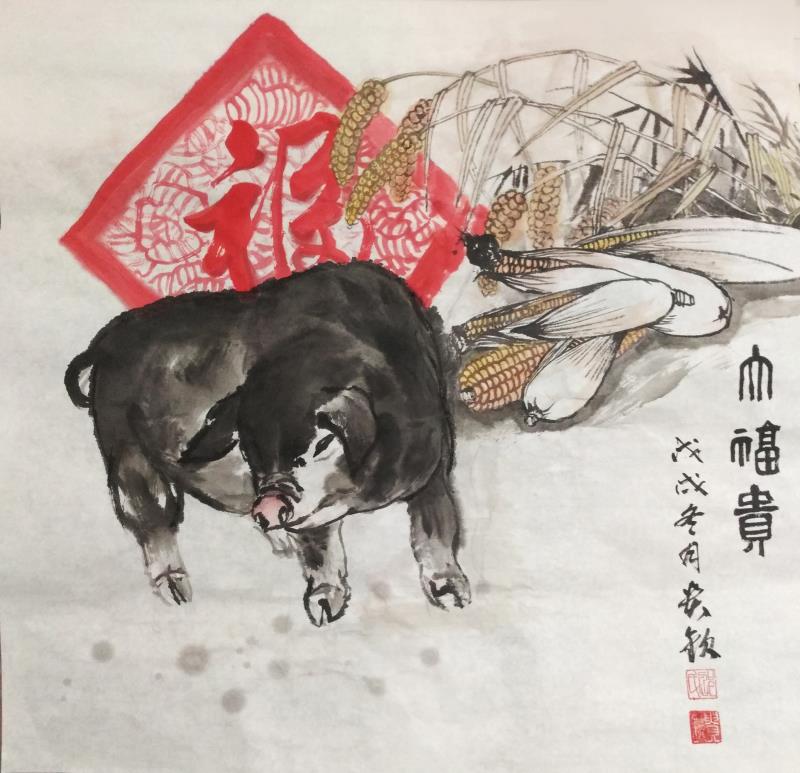 福
大福貴
戊戌冬月